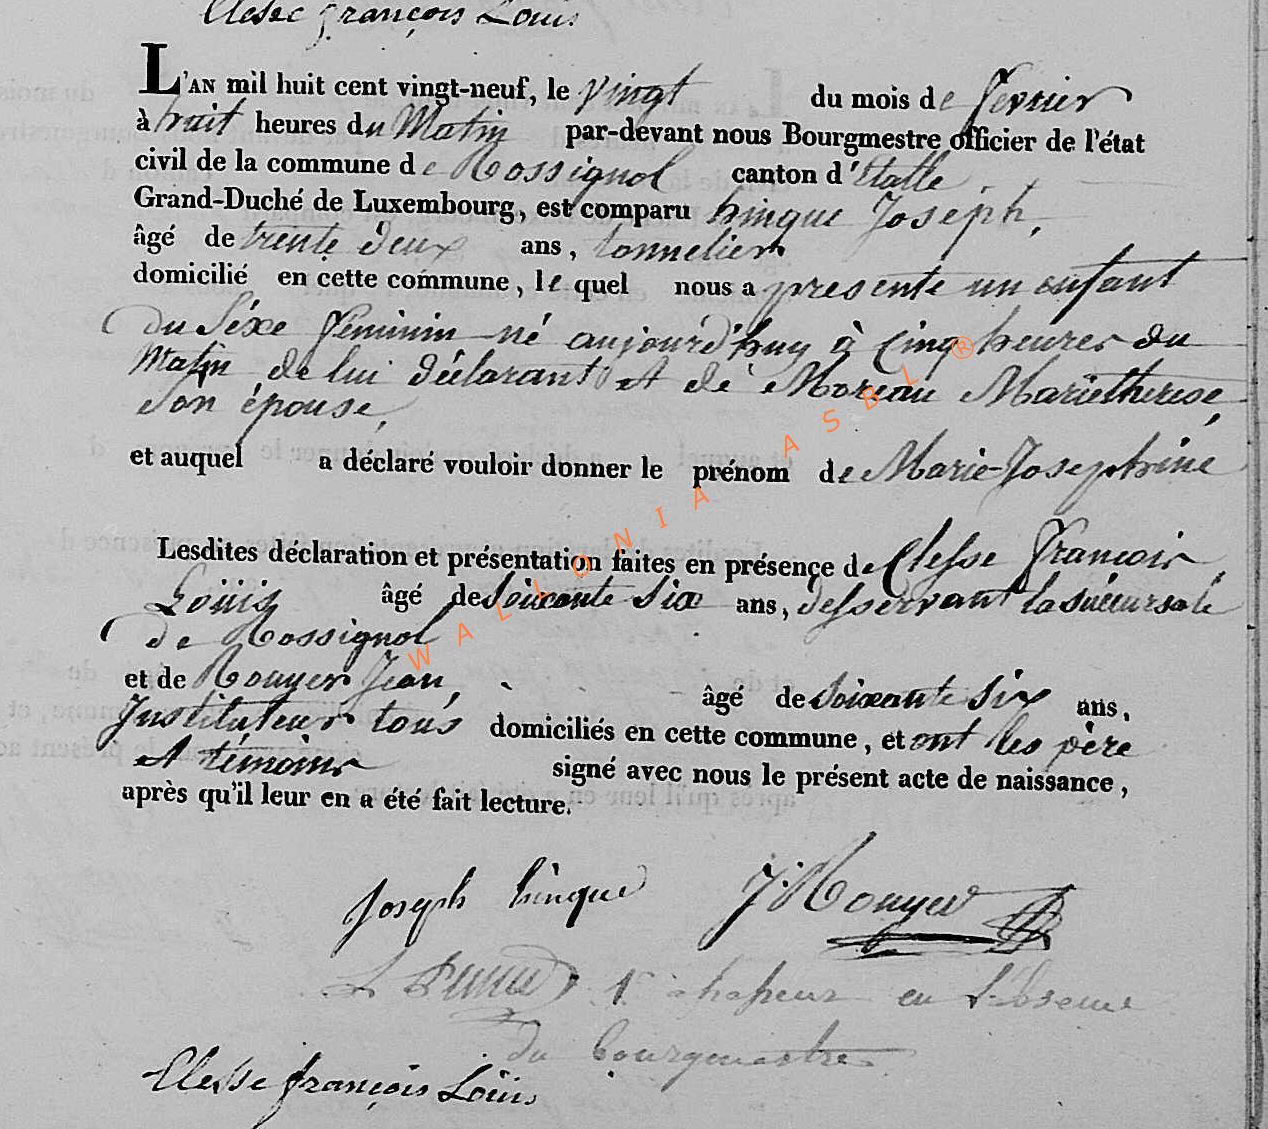 Clesse françois Louis
L'AN mil huit cent vingt-neuf, le vingt du mois de fevrier
à huit heures du Matin par-devant nous Bourgmestre officier de l'état
civil de la commune de Rossignol canton d'Etalle
Grand-Duché de Luxembourg, est comparu hinque Joseph,
âgé de trente deux ans, tonnelier
domicilié en cette commune, le quel nous a presenté un enfant
du Séxe feminin né aujourd'huy à Cinq heures du
Matin, de lui déclarant et de Moreau Marietherese,
Son épouse,
et auquel a déclaré vouloir donner le prénom de Marie-Josephine
Lesdites déclaration et présentation faites en présence de Clesse francois
Louis âgé de Soixante Six ans, desservant la succursale
de Rossignol
et de Rouyer Jean, âgé de soixante Six ans,
Instituteur tous domiciliés en cette commune, et ont les père
et témoins signé avec nous le présent acte de naissance,
après qu'il leur en a été fait lecture.
Joseph hinque J: Rouyer
en L'absence
du bourgmestre
Clesse françois Louis
WALLONIA ASBL ®